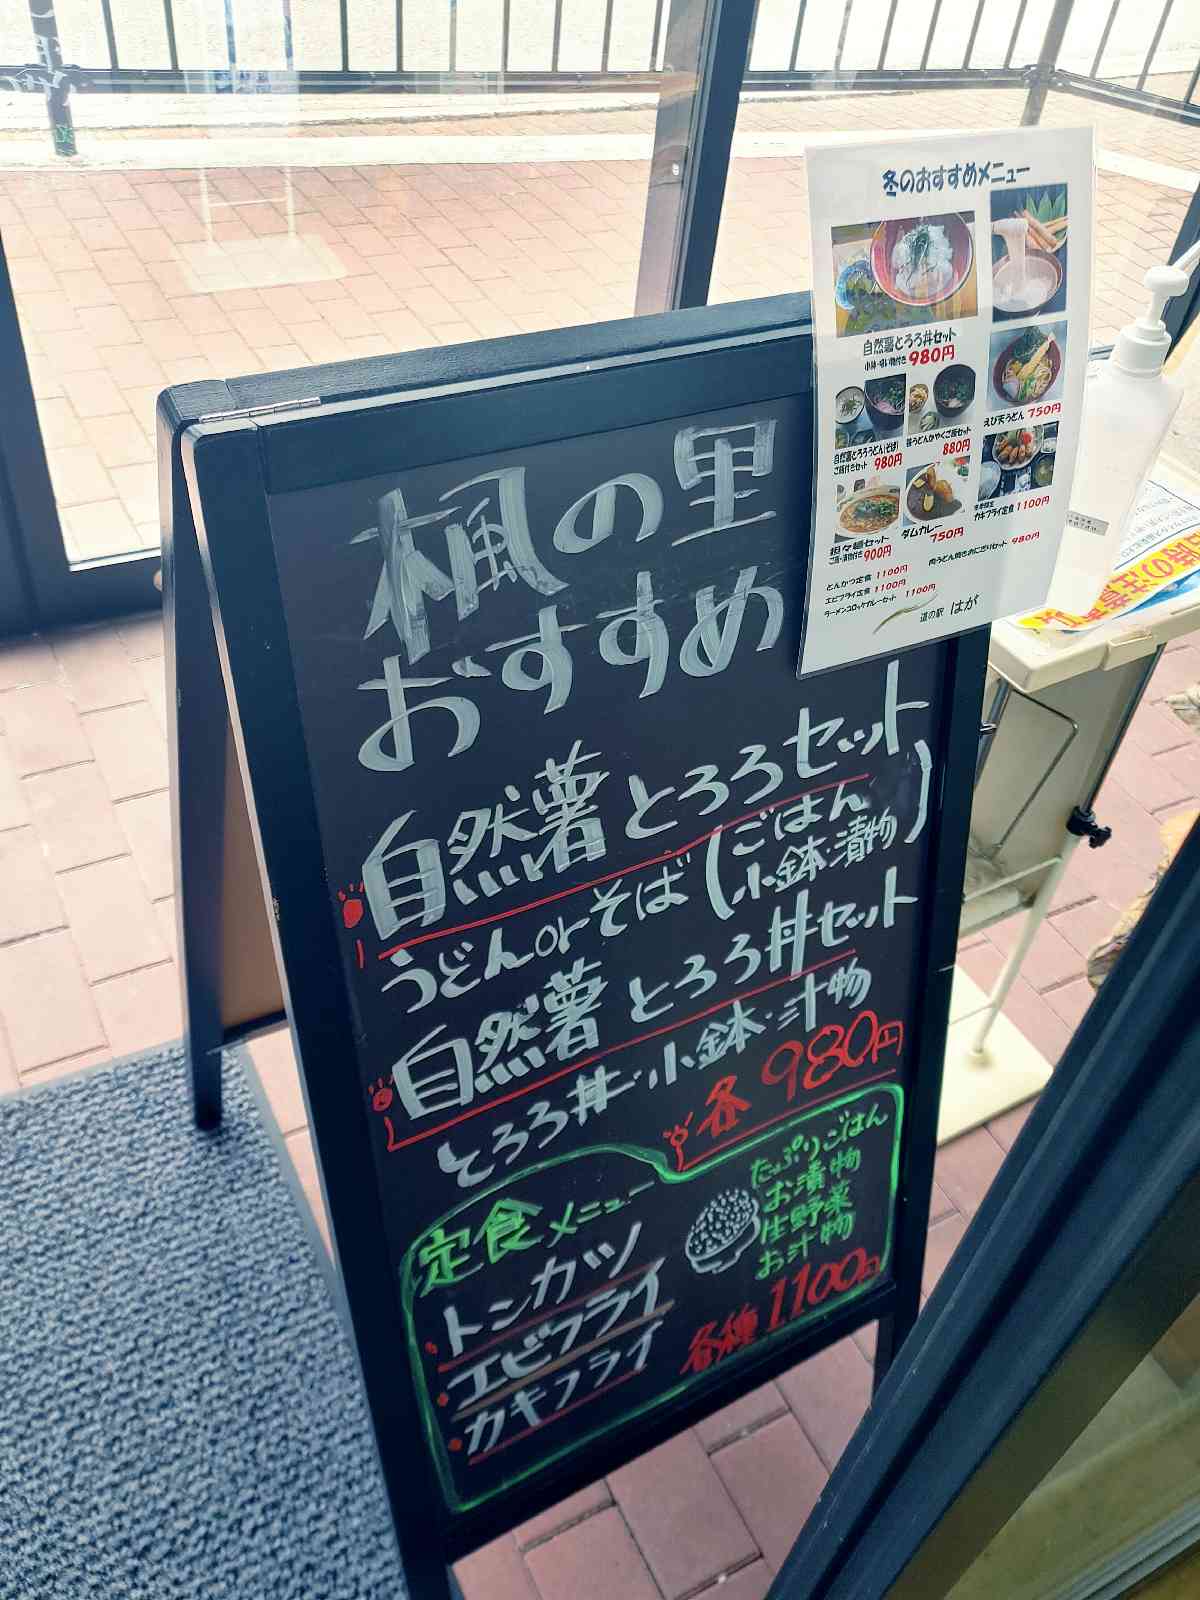 冬のおすすめメニュー
自然薯とろろ丼セット
小鉢・吸い物付き 980円
自然薯とろろうどん(そば)
ご飯付きセット 980円
880円
えび天うどん 750円
担々麺セット
ご飯・漬物付き 900円
ダムカレー
750円
カキフライ定食 1100円
とんかつ定食 1100円
エビフライ定食 1100円
ラーメンコロッケカレーセット 1100円
肉うどん焼きおにぎりセット 980円
道の駅 はが
楓の里
おすすめ
自然薯とろろセット
うどんorそば(ごはん
小鉢・漬物)
自然薯とろろ丼セット
とろろ丼・小鉢・汁物
各 980円
定食メニュー
トンカツ
エビフライ
カキフライ
たっぷりごはん
お漬物
生野菜
お汁物
各種 1100円